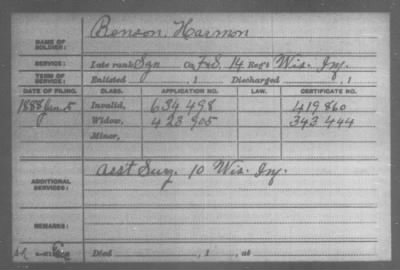 NAME OF SOLDIER: Benson, Harmon
SERVICE: Late rank Sgn Co. F&S, 14 Reg't Wis. Inf.
TERM OF SERVICE: Enlisted , 1 Discharged , 1
DATE OF FILING. CLASS. APPLICATION NO. LAW. CERTIFICATE NO.
1888 5 Invalid, 634 498 419 860
Widow, 423 905 343 444
Minor,
ADDITIONAL SERVICES: Ass't Surg. 10 Wis. Inf.
REMARKS:
Died , 1 , at